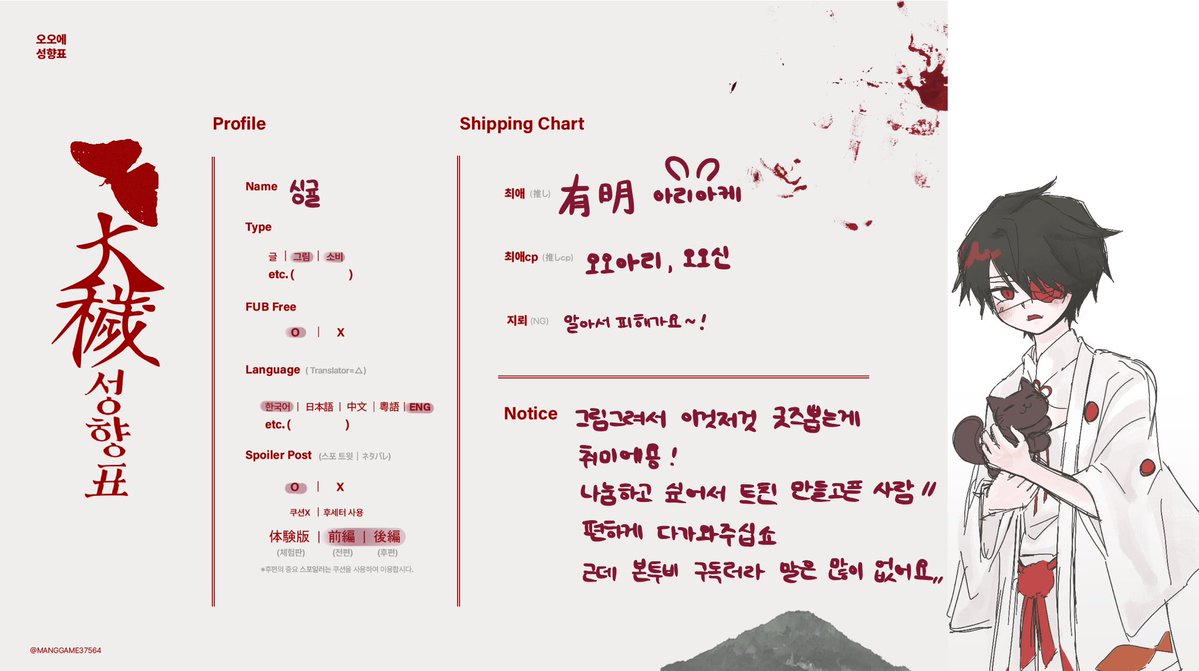 오오에
성향표
大穢
성향표
Profile
Name 싱귤
Type
글 | 그림 | 소비
etc. ( )
FUB Free
O | X
Language ( Translator=△)
한국어 | 日本語 | 中文 | 粵語 | ENG
etc. ( )
Spoiler Post (스포 트윗 | ネタバレ)
O | X
쿠션X | 후세터 사용
体験版 | 前編 | 後編
(체험판) (전편) (후편)
*후편의 중요 스포일러는 쿠션을 사용하여 이용합니다.
Shipping Chart
최애 (推し) 有明 아리아케
최애cp (推しcp) 오오아리, 오오신
지뢰 (NG) 알아서 피해가요~!
Notice 그림그려서 이것저것 굿즈뽑는게
취미에용!
나눔하고 싶어서 트친 만들고픈 사람 //
편하게 다가와주십쇼
근데 본투비 구독러라 말은 많이 없어요,,
@MANGGAME37564